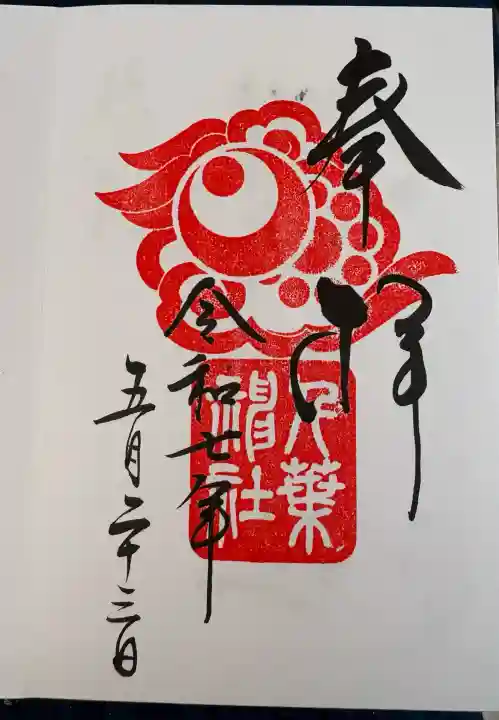 奉拝
千葉
神社
令和七年
五月二十三日